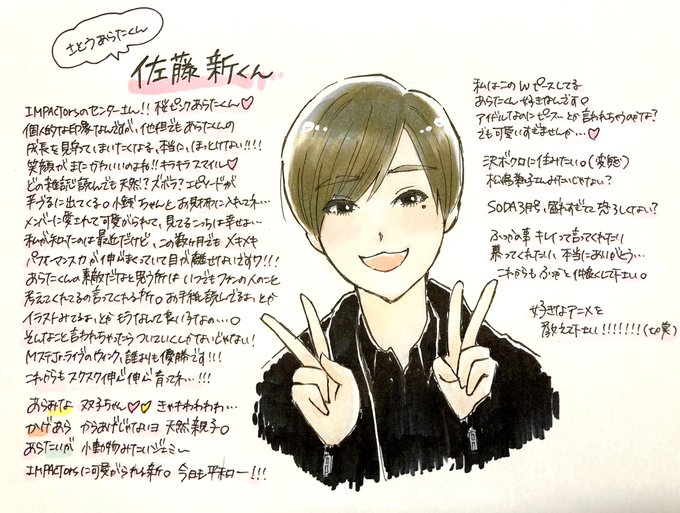 さとうあらたくん
佐藤 新くん
IMPACTorsのセンターさん!! 桜ピンクあらたくん♡
個人的な印象なんですが、他担でもあらたくんの
成長を見守ってしまいたくなる、本当に、ほっとけない!!!
笑顔がまたかわいいのよね!! キラキラスマイル♡
どの雑誌読んでも天然?ズボラ?エピソードが
幸づるに出てくる。小銭ちゃんと お財布に入れてネ…
メンバーに愛されて可愛がられて、見てるこっちは幸せよ…
私が知ったのは最近だけど、この数ヶ月でも メキメキ
パフォーマンス力が伸びまくっていて目が離せないです!!
あらたくんの素敵だなと思う所は いつでもファンの人のこと
考えてくれてる の言ってくれる所。お手紙読んでるよ、とか
イラストみてるよ、とか もうなんて良い子なの…。
そんなこと言われちゃったら ついていくしかないじゃない!
MステとライブのウィンクI、誰よりも優勝です!!!
これからも スクスク伸び伸び 育ってネ…!!!
あらみな 双子ちゃん♡♡ きゃわわわわ…
かげあら からあげじゃないヨ 天然親子。
あらたいが 小動物みたいジェミ〜
IMPACTorsに可愛がられる新。今日も平和ー!!!
私はこの W ピースしてる
あらたくん 好きなんです。
アイドルなのにピース…と言われちゃうのかな?
でも可愛いすぎませんか…♡
涙ボクロに住みたい。(変態)
松島聡さんみたいじゃない?
SODA 3月号、盛れすぎてて 恐ろしくない?
ふぉゆの事 キレイって言ってくれたり
慕ってくれたり、本当にありがとう…
これからも ふぉゆと仲良くして下さい。
好きなアニメを
教えて下さい!!!!!!!(切実)